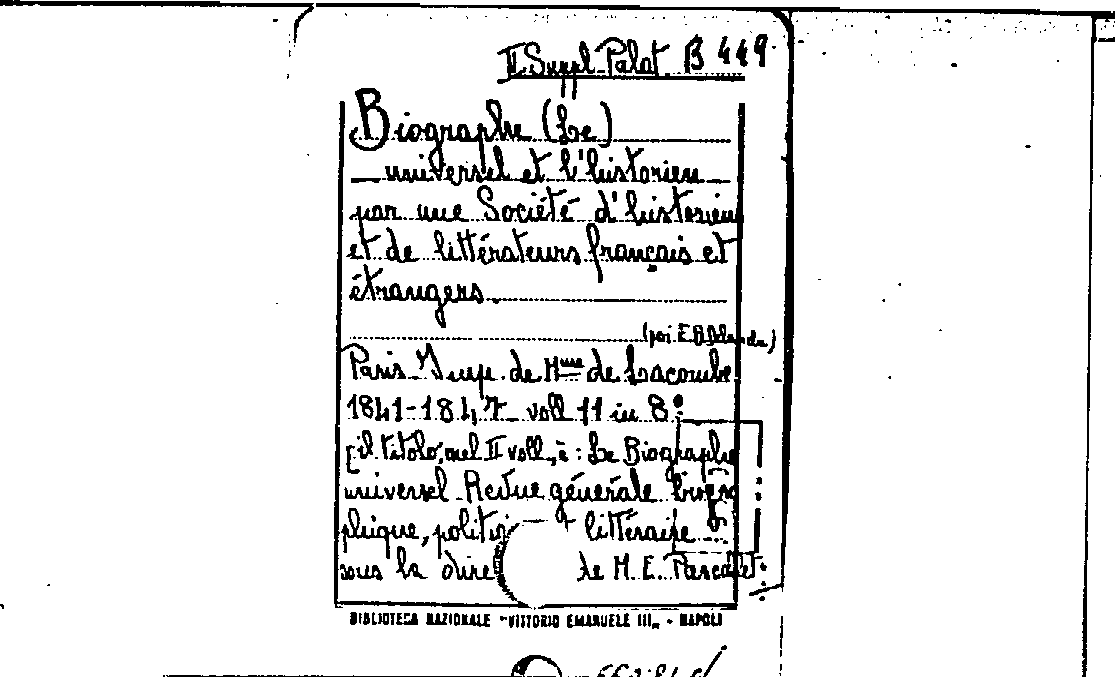 II Suppl. Palat. B 449
Biographe (Le)
universel et l'historien
par une Société d'historiens
et de littérateurs français et
étrangers.
Paris Imp. de Mme de Lacombe
1841-1847 voll 11 in 8º
[il titolo, nel II voll., è: Le Biographe
universel Revue générale biogra
phique, politi littéraire
sous la dire de M. E. Pascallet
BIBLIOTECA NAZIONALE "VITTORIO EMANUELE III" - NAPOLI